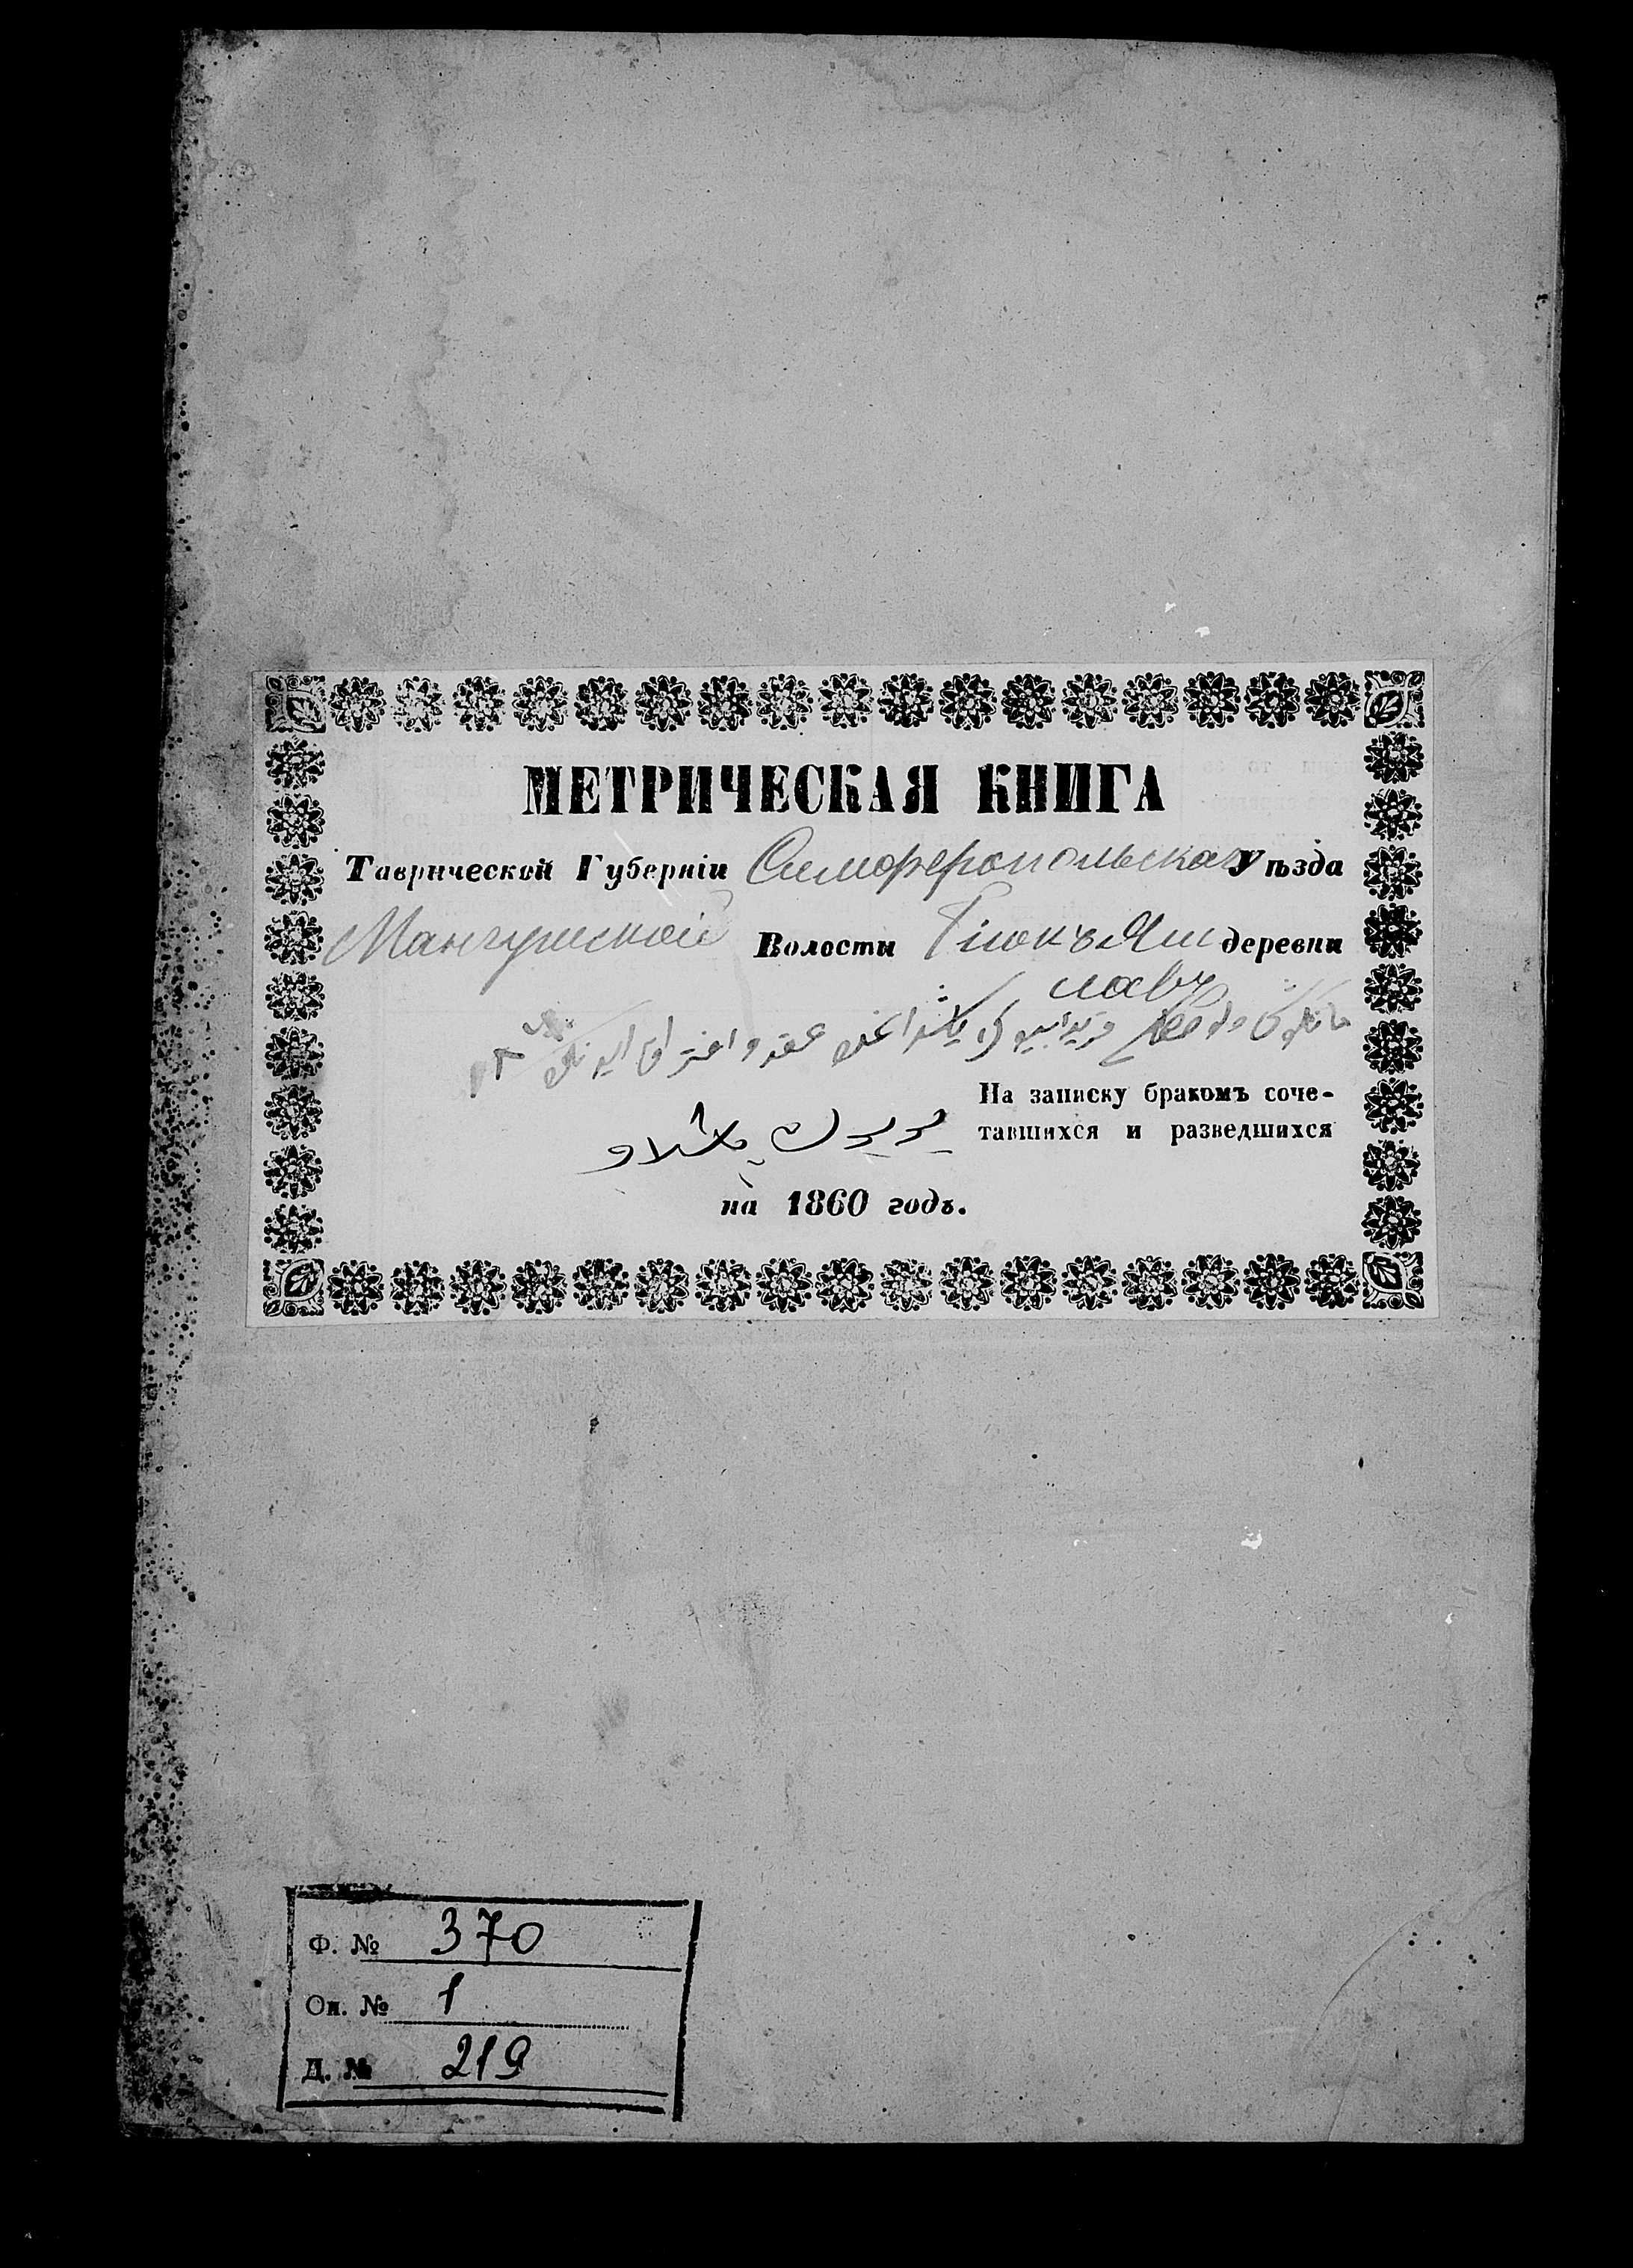 МЕТРИЧЕСКАЯ КНИГА
Таврической Губерніи Симферопольскаго Уѣзда
Мангушской Волости Біюкъ Яш деревни
лавъ
На записку бракомъ соче-
тавшихся и разведшихся
بيوك ياشلاو
на 1860 годъ.
Ф. № 370
Оп. № 1
Д. № 219